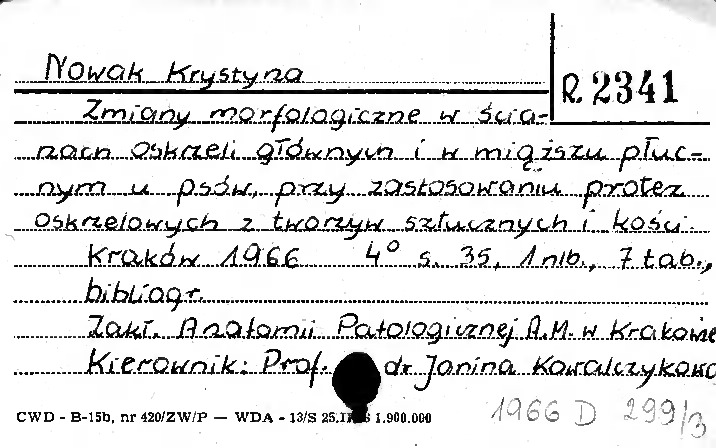 Nowak Krystyna
R 2341
Zmiany morfologiczne w ścia-
nach oskrzeli głównych i w miąższu płuc-
nym u psów, przy zastosowaniu protez
oskrzelowych z tworzyw sztucznych i kości.
Kraków 1966 4° s. 35, 1 nlb., 7 tab.,
bibliogr.
Zakł. Anatomii Patologicznej A.M. w Krakowie
Kierownik: Prof. dr Janina Kowalczykowa
CWD - B-15b, nr 420/ZW/P — WDA - 13/S 1.900.000
1966 D 299/3